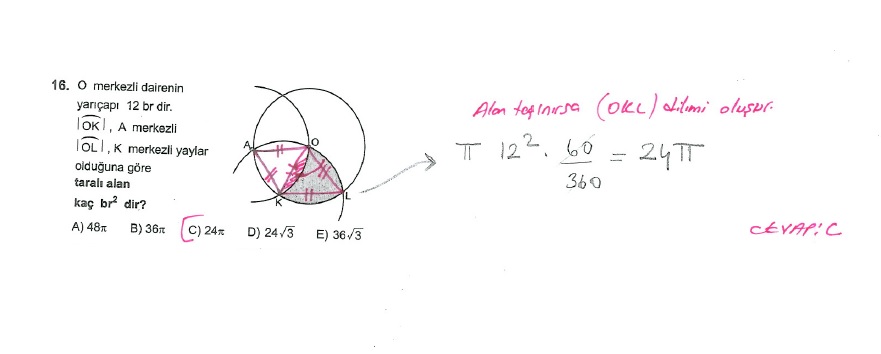 16. O merkezli dairenin
yarıçapı 12 br dir.
|OK|, A merkezli
|OL|, K merkezli yaylar
olduğuna göre
taralı alan
kaç br² dir?
A) 48π B) 36π C) 24π D) 24√3 E) 36√3
A
O
K
L
Alan taşınırsa (OKL) dilimi oluşur.
π 12² · 60/360 = 24π
CEVAP: C